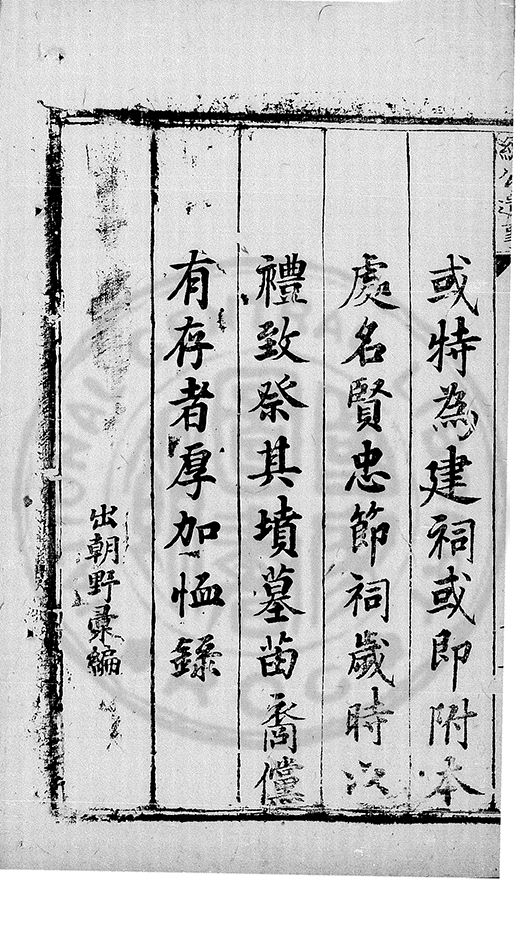 或特為建祠或即附本
處名賢忠節祠歲時以
禮致祭其墳墓苗裔儻
有存者厚加恤錄
出朝野彙編